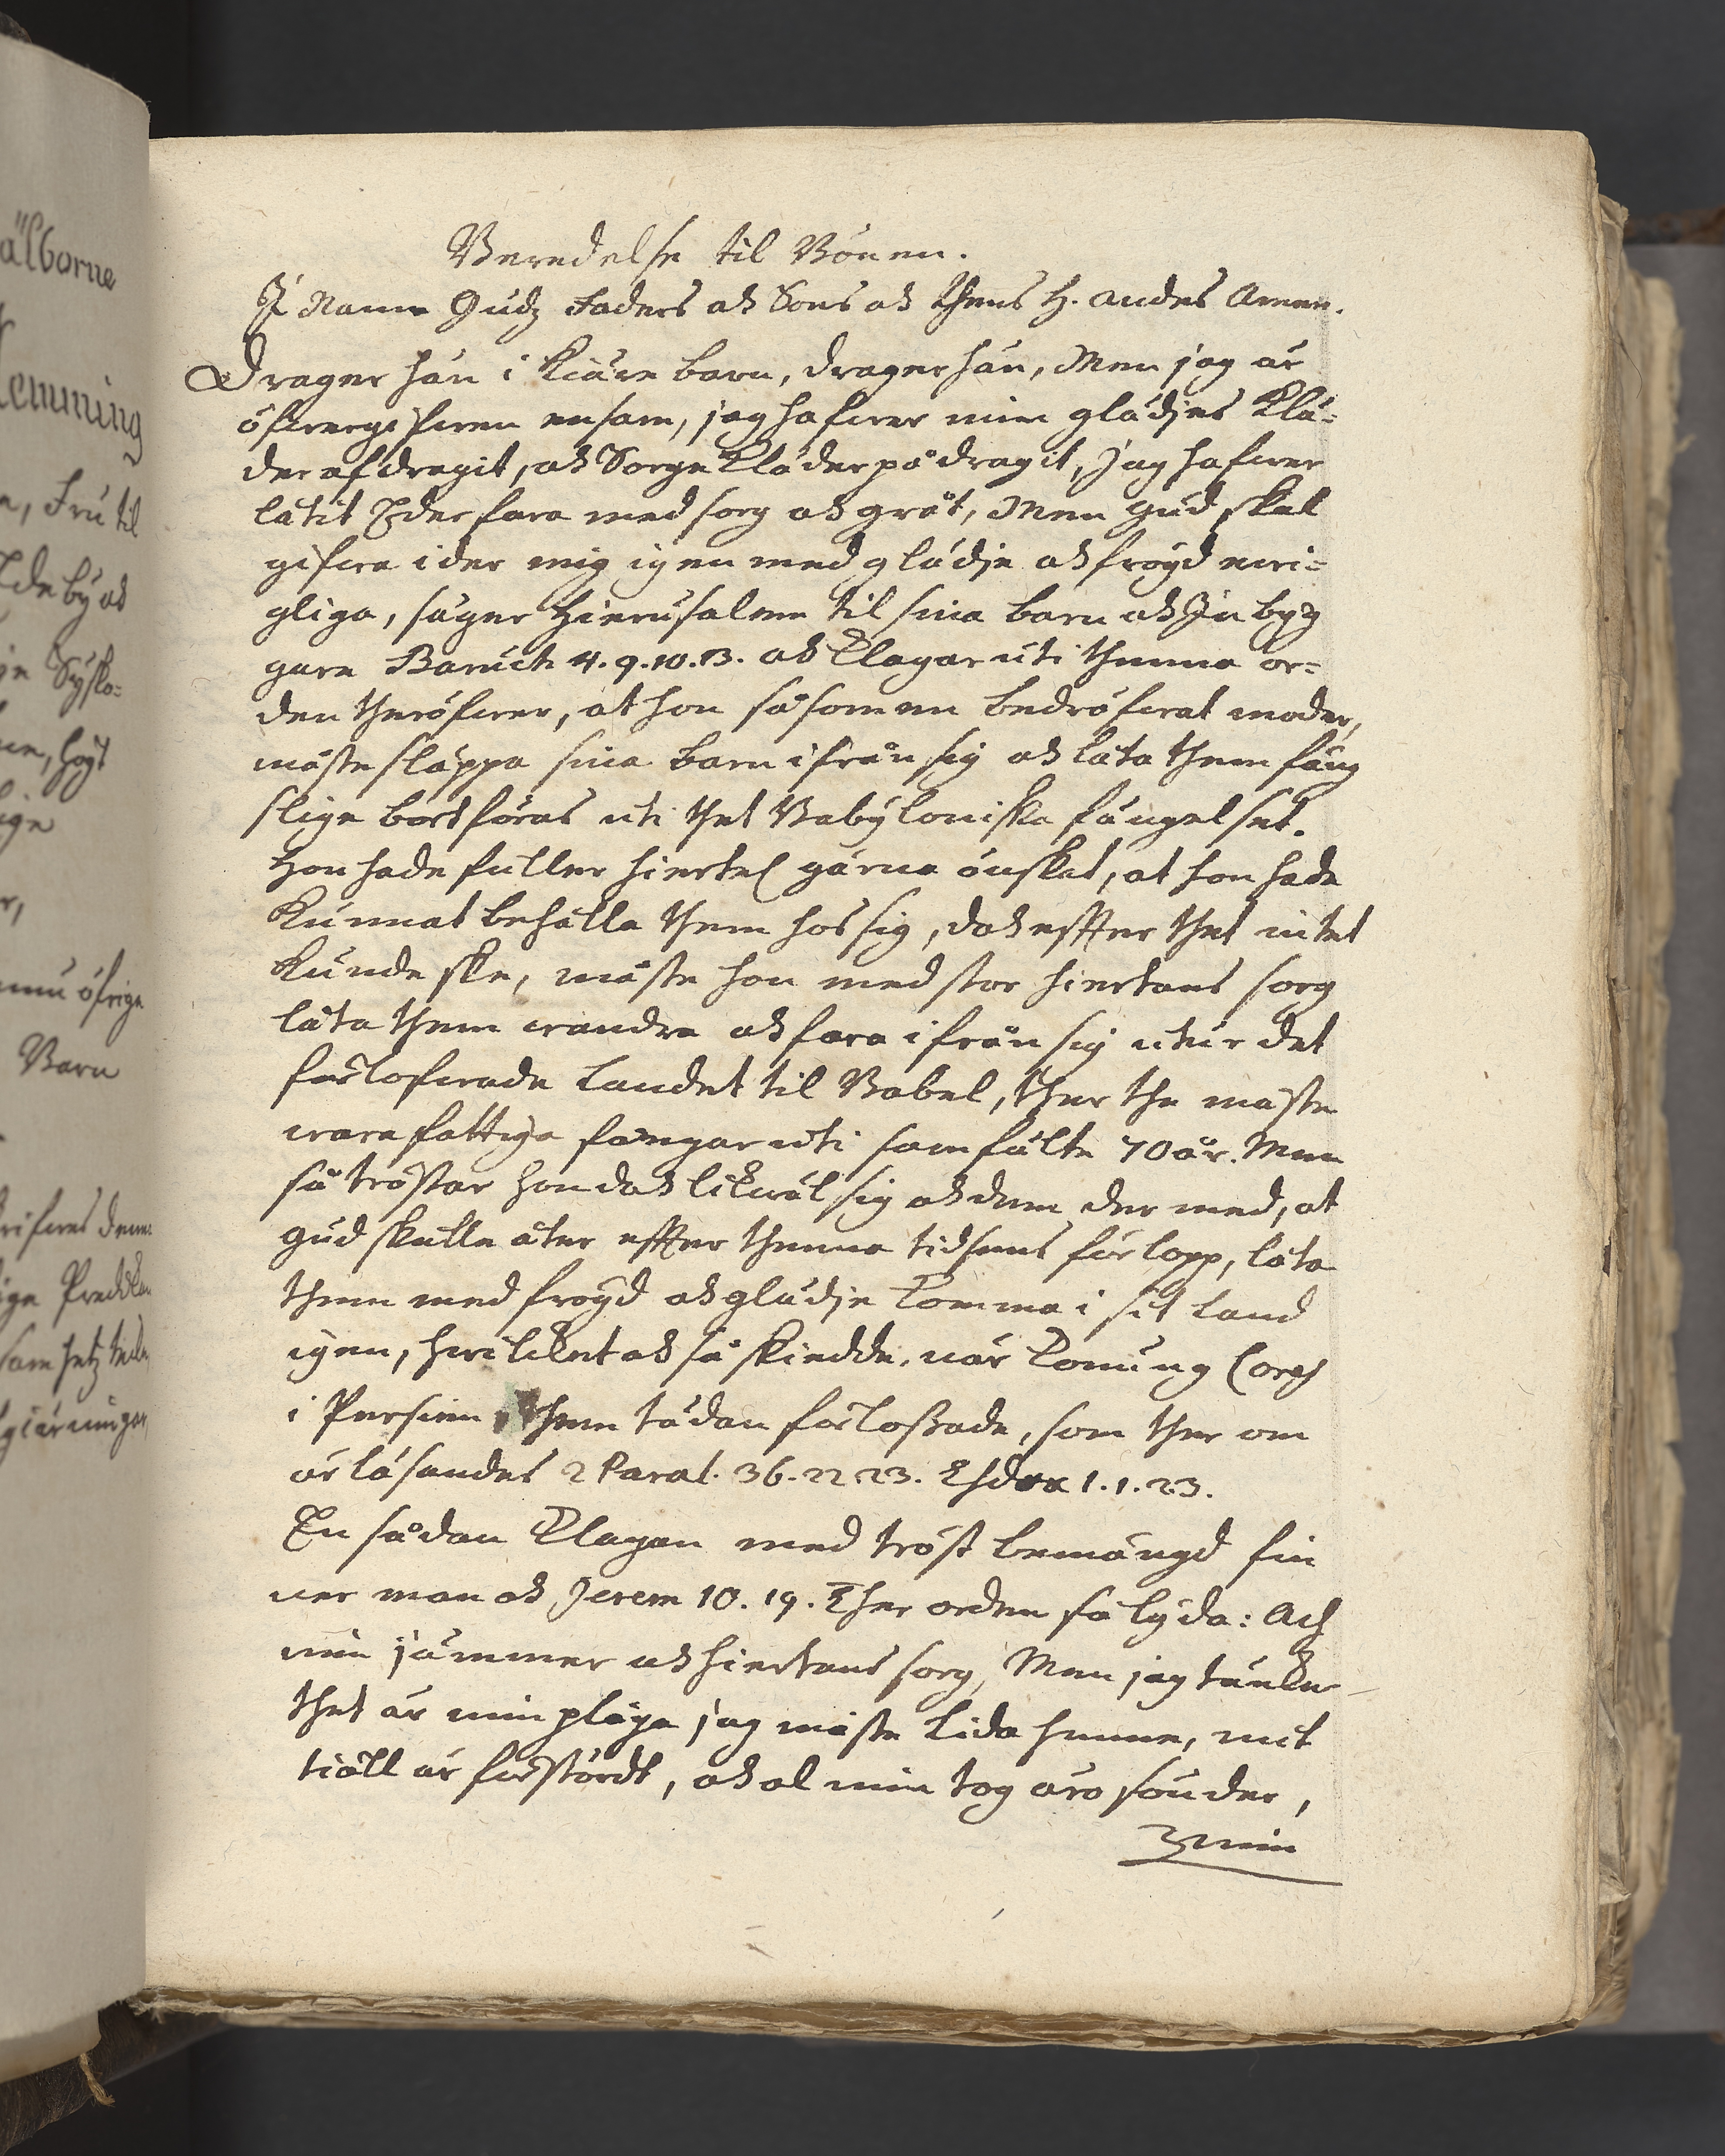 älborne
lemming
a, Fru til
Ideby ok
Barn
Beredelse til Bönen.
I Namn Gudz Faders ok Sons ok thens H. Andes Amen.
Drager hän i kiäre barn, drager hän, Men jag är
öfwergifwen ensam, jag hafwer min glädjes klä-
der afdragit, ok Sorgekläder pådragit, Jag hafwer
låtit Eder fara med sorg ok gråt, Men Gud skal
gifwa ider mig igen med glädje ok fröyd ewi-
gliga, säger Hierusalem til sina barn ok Inbyg
gare Baruch 4. 9. 10. 13. ok klagar uti thenna or-
den theröfwer, at hon såsom en bedröfwat moder,
måste släppa sina barn ifrån sig ok låta them fäng
slige bortföras uti thet Babyloniska fängelset.
Hon hade fuller hiertel gärna önskat, at hon hade
kunnat behålla them hos sig, dok effter thet intet
kunde ske, måste hon med stor hiertans sorg
låta them wandra ok fara ifrån sig utur det
förlofwade landet til Babel, ther the måste
wara fattiga fångar uti samfälte 70 år. Men
så tröstar hon dok likwäl sig ok dem der med, at
Gud skulle åter effter thenna tidsens förlopp, låta
them med fröyd ok glädje komma i sit land
igen, hwilket ok så skiedde, när Konung Cores
i Persien them tädan förloßade, som ther om
är läsandes 2 Paral. 36. 22 23. Esdra 1. 1. 2 3.
En sådan klagan med tröst bemängd fin
ner man ok Jerem 10. 19. Ther orden så lyda: Ach
min jämmer ok hiertans sorg, Men jag tänker
thet är min plåga jag måste lida henne, mit
tiäll är förstördt, ok al min tog äro sönder,
min